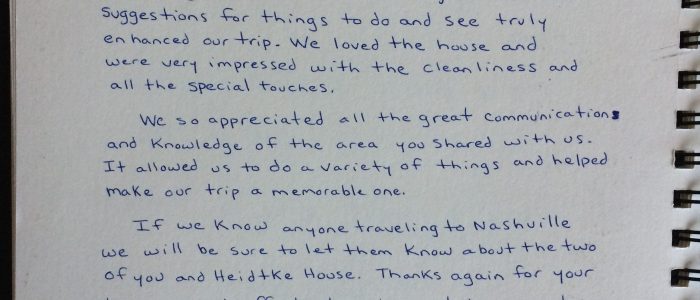 suggestions for things to do and see truly
enhanced our trip. We loved the house and
were very impressed with the cleanliness and
all the special touches.
We so appreciated all the great communications
and knowledge of the area you shared with us.
It allowed us to do a variety of things and helped
make our trip a memorable one.
If we know anyone traveling to Nashville
we will be sure to let them know about the two
of you and Heidtke House. Thanks again for your